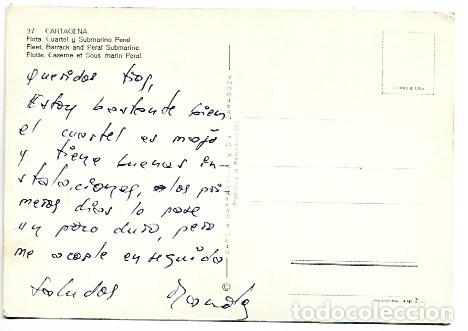 37 - CARTAGENA
Flota, Cuartel y Submarino Peral.
Fleet, Barrack and Peral Submarine.
Flotte, Caserne et Sous marin Peral.
Queridos tios,
Estoy bastante bien
el cuartel es majo
y tiene buenas in-
stalaciones, los pri
meros dias lo pase
un poco duro, pero
me acople en seguida
Saludos
©
todocoleccion.net